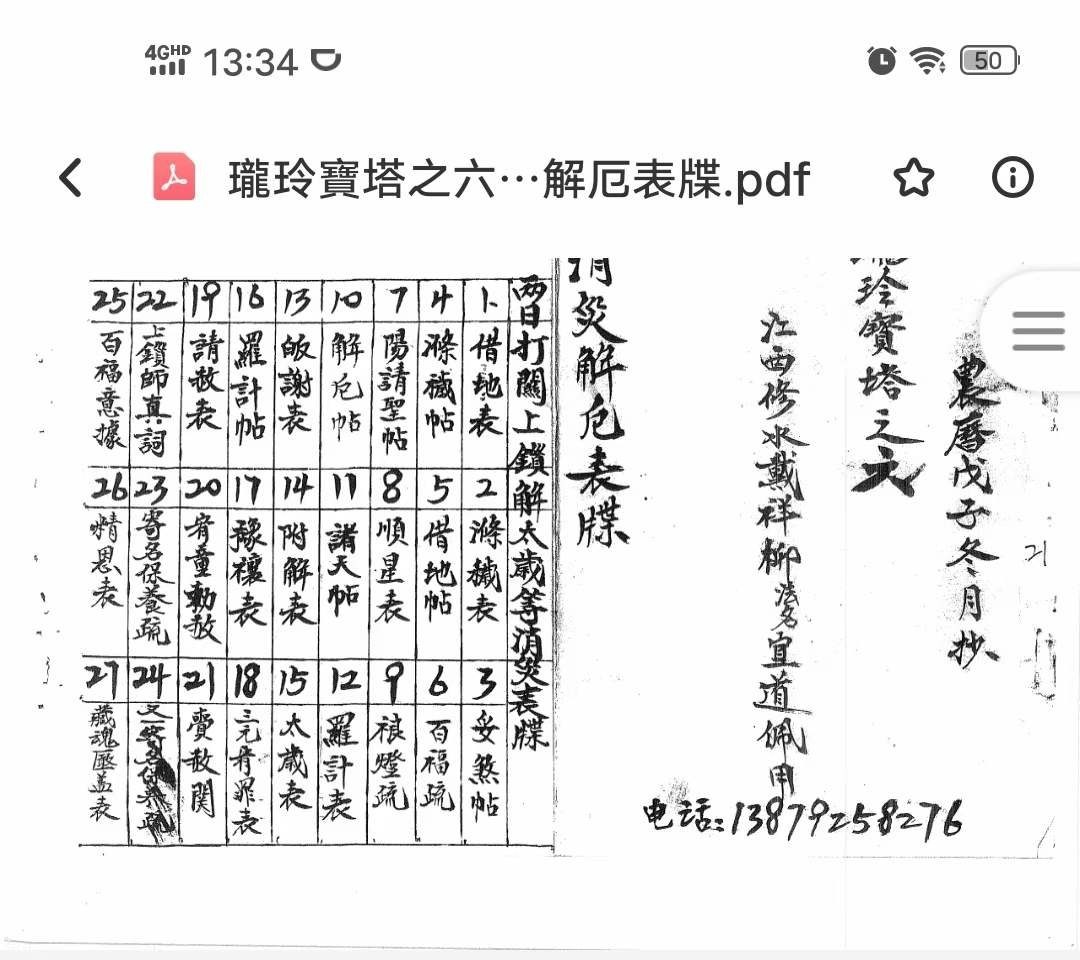 4GHD 13:34 50
瓏玲寶塔之六…解厄表牒.pdf
農曆戊子冬月抄
瓏玲寶塔之六
江西修水戴祥柳法名宜道佩用
电话:13879258276
消災解厄表牒
两日打關上鎖解太歲等消災表牒
1 借地表
2 滌穢表
3 妥煞帖
4 滌穢帖
5 借地帖
6 百福疏
7 陽請聖帖
8 順星表
9 禳燈疏
10 解厄帖
11 諸天帖
12 羅計表
13 皈謝表
14 附解表
15 太歲表
16 羅計帖
17 豫禳表
18 三元宥罪表
19 請赦表
20 宥童勅赦
21 賫赦関
22 上鎖師真詞
23 寄名保養疏
24 又一寄名保养疏
25 百福意據
26 精恩表
27 藏魂匦盖表